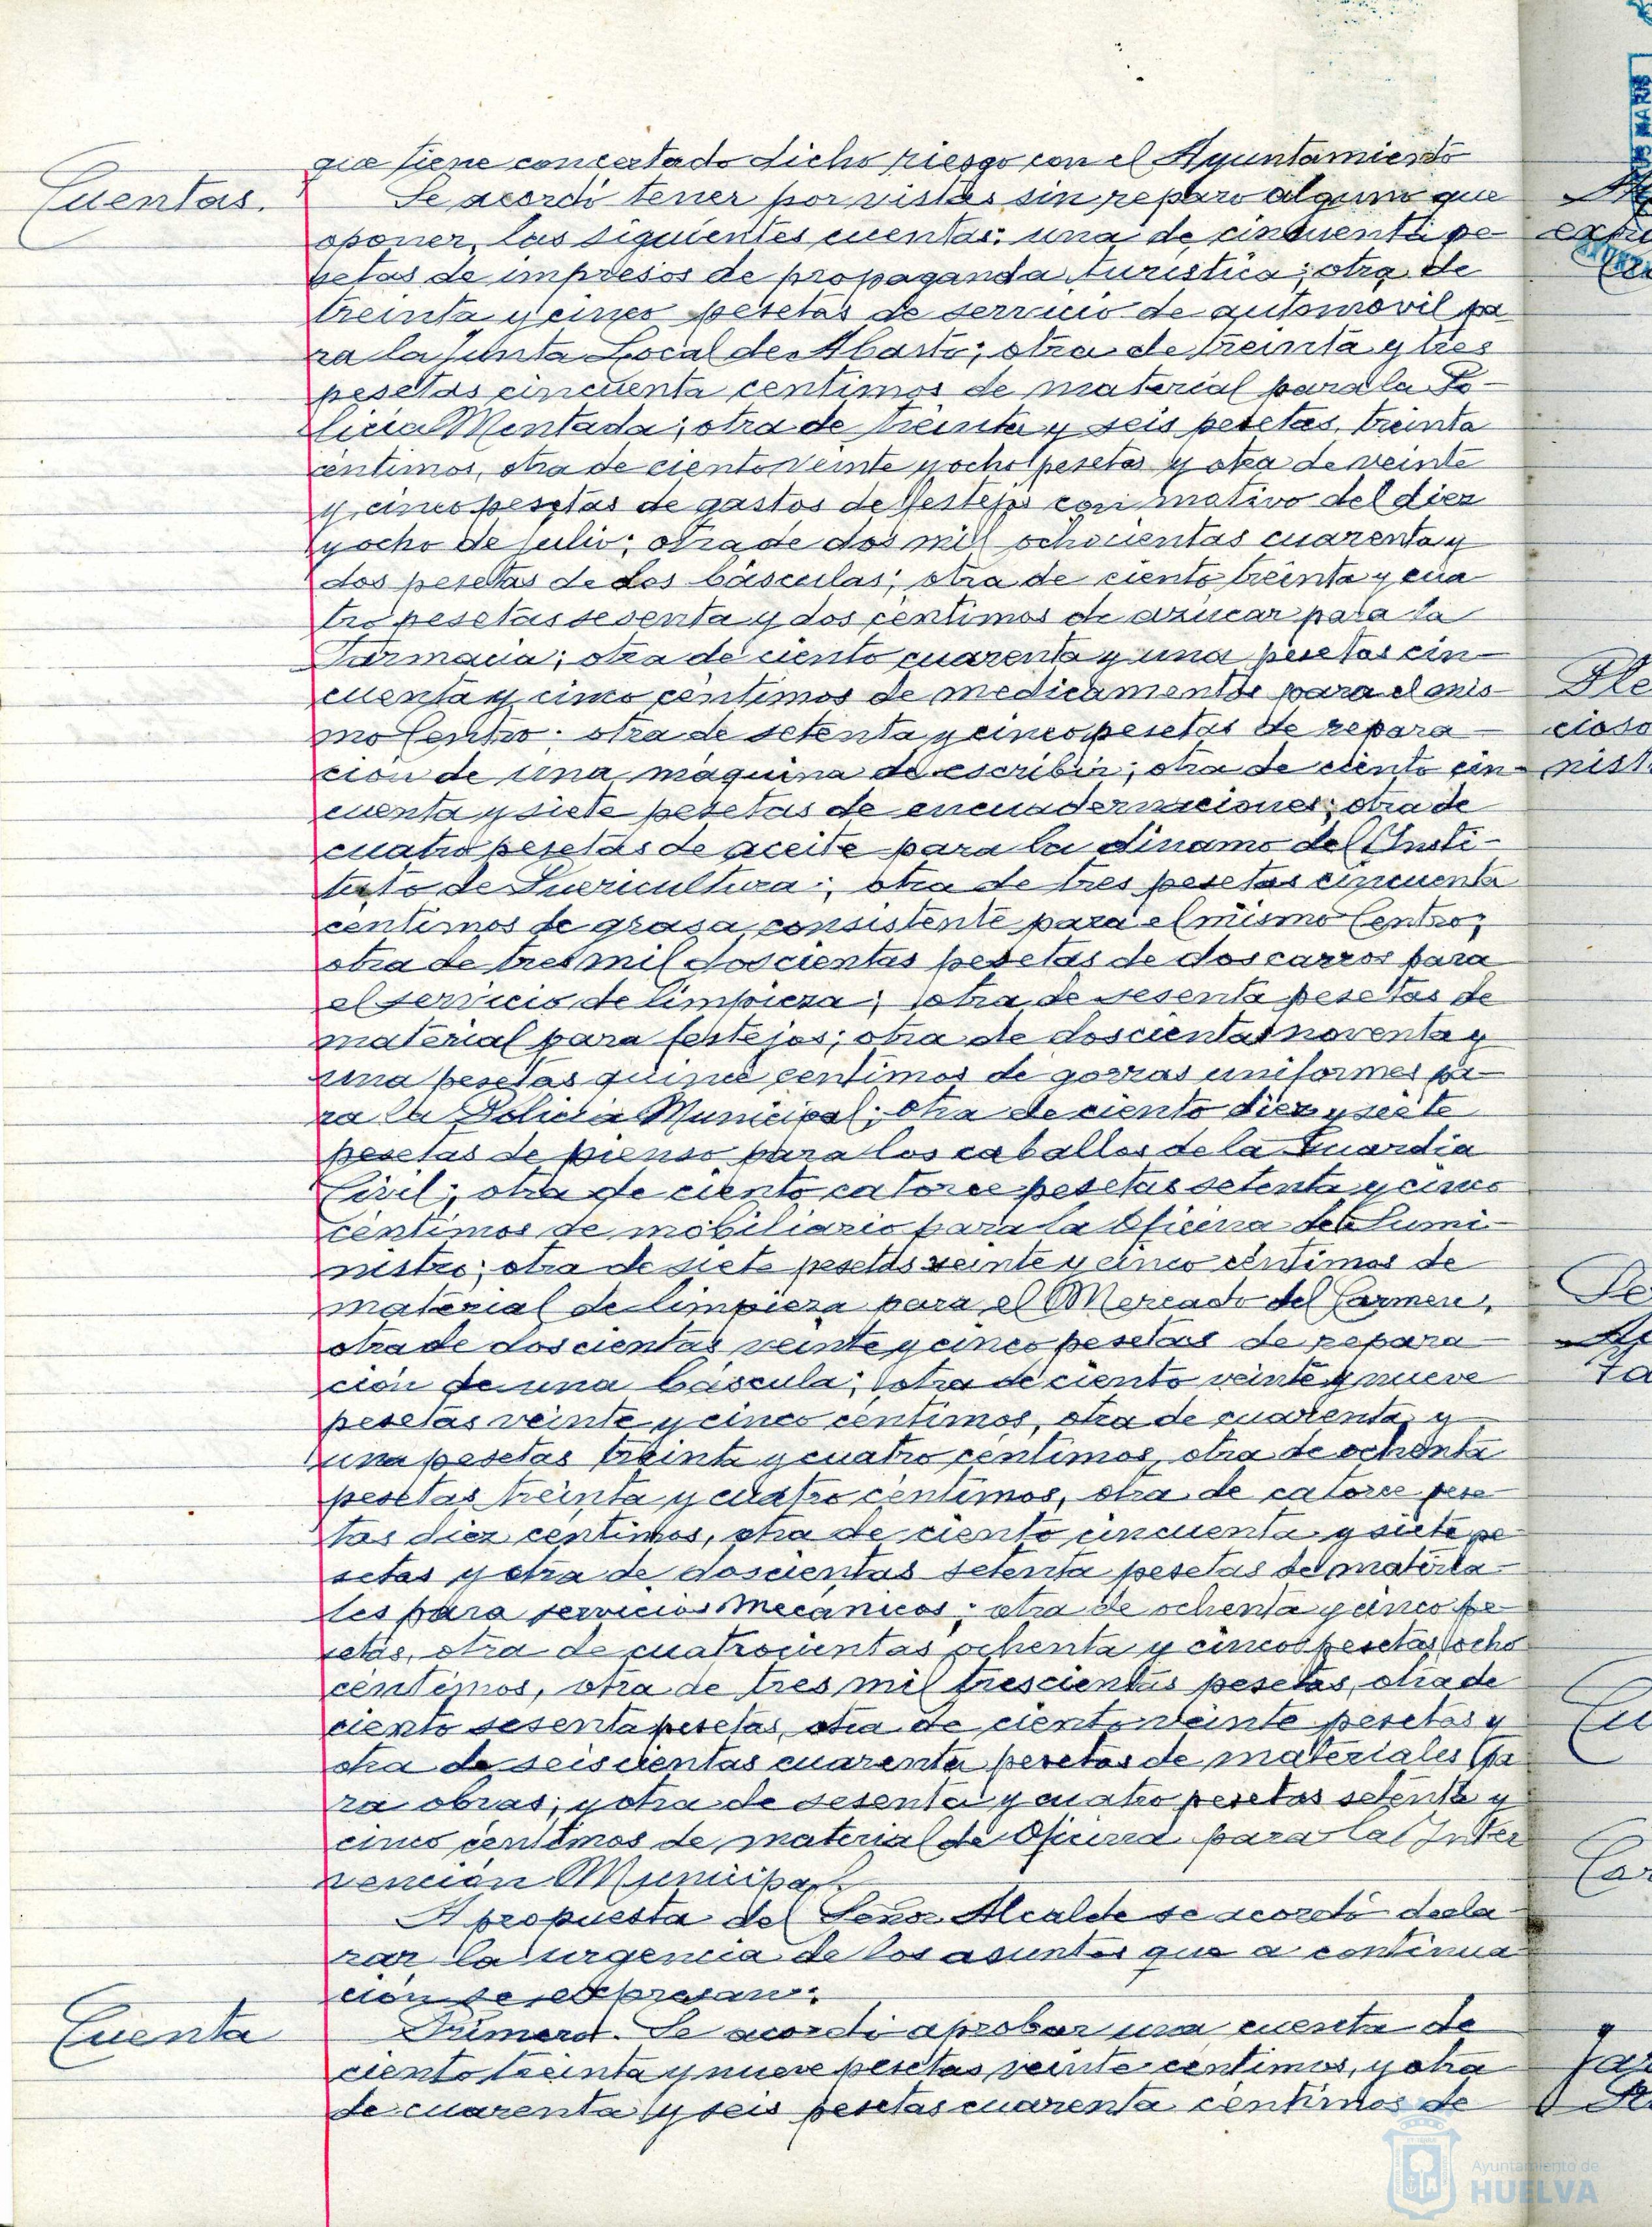 que tiene concertado dicho riesgo con el Ayuntamiento
Cuentas.
Se acordó tener por vistas sin reparo alguno que
oponer, las siguientes cuentas: una de cincuenta pe-
setas de impresos de propaganda turística; otra de
treinta y cinco pesetas de servicio de automovil pa
ra la Junta Local de Abasto; otra de treinta y tres
pesetas cincuenta centimos de material para la Po-
licia Montada; otra de treinta y seis pesetas, treinta
céntimos, otra de ciento veinte y ocho pesetas y otra de veinte
y cinco pesetas de gastos de festejos con motivo del diez
y ocho de Julio; otra de dos mil ochocientas cuarenta y
dos pesetas de dos básculas; otra de ciento treinta y cua
tro pesetas sesenta y dos céntimos de azúcar para la
Farmacia; otra de ciento cuarenta y una pesetas cin-
cuenta y cinco céntimos de medicamentos para el mis-
mo Centro; otra de setenta y cinco pesetas de repara-
ción de una máquina de escribir; otra de ciento cin-
cuenta y siete pesetas de encuadernaciones; otra de
cuatro pesetas de aceite para la dinamo del Insti-
tuto de Puericultura; otra de tres pesetas cincuenta
centimos de grasa consistente para el mismo Centro;
otra de tres mil doscientas pesetas de dos carros para
el servicio de limpieza; otra de sesenta pesetas de
material para festejos; otra de doscientas noventa y
una pesetas quince centimos de gorras uniformes pa-
ra la Policia Municipal; otra de ciento diez y siete
pesetas de pienso para los caballos de la Guardia
Civil; otra de ciento catorce pesetas setenta y cinco
céntimos de mobiliario para la Oficina de Sumi-
nistro; otra de siete pesetas veinte y cinco céntimos de
material de limpieza para el Mercado del Carmen,
otra de doscientas veinte y cinco pesetas de repara-
ción de una báscula; otra de ciento veinte y nueve
pesetas veinte y cinco céntimos, otra de cuarenta y
una pesetas treinta y cuatro céntimos, otra de ochenta
pesetas treinta y cuatro céntimos, otra de catorce pese-
tas diez céntimos, otra de ciento cincuenta y siete pe
setas y otra de doscientas setenta pesetas de materia-
les para servicios Mecánicos; otra de ochenta y cinco pe-
setas, otra de cuatrocientas ochenta y cinco pesetas ocho
céntimos, otra de tres mil trescientas pesetas, otra de
ciento sesenta pesetas, otra de ciento veinte pesetas y
otra de seiscientas cuarenta pesetas de materiales pa
ra obras; y otra de sesenta y cuatro pesetas setenta y
cinco centimos de material de Oficina para la Inter
vención Municipal.
A propuesta del Señor Alcalde se acordó decla-
rar la urgencia de los asuntos que a continua
ción se expresan:
Cuenta
Primero. Se acordó aprobar una cuenta de
ciento treinta y nueve pesetas veinte centimos, y otra
de cuarenta y seis pesetas cuarenta céntimos de
Ayuntamiento de
HUELVA